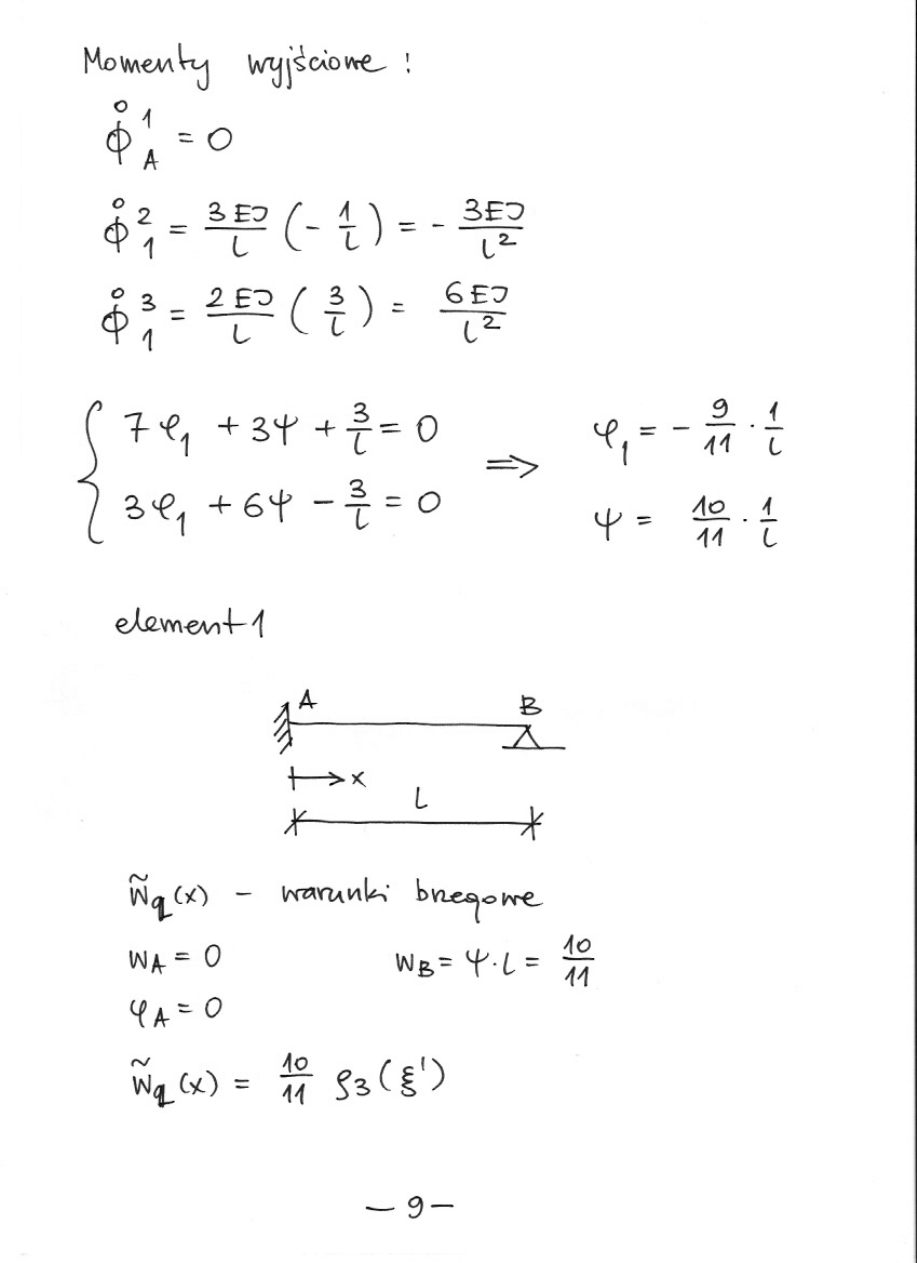 Momenty wyjściowe :
ϕ̊ ¹_A = 0
ϕ̊ ²_1 = 3EJ/l (- 1/l) = - 3EJ/l²
ϕ̊ ³_1 = 2EJ/l ( 3/l ) = 6EJ/l²
7φ₁ + 3ψ + 3/l = 0 ⇒ φ₁ = - 9/11 · 1/l
3φ₁ + 6ψ - 3/l = 0 ψ = 10/11 · 1/l
element 1
A B
x
L
w̃_q (x) - warunki brzegowe
w_A = 0 w_B = ψ·l = 10/11
φ_A = 0
w̃_q (x) = 10/11 ρ₃(ξ')
- 9 -